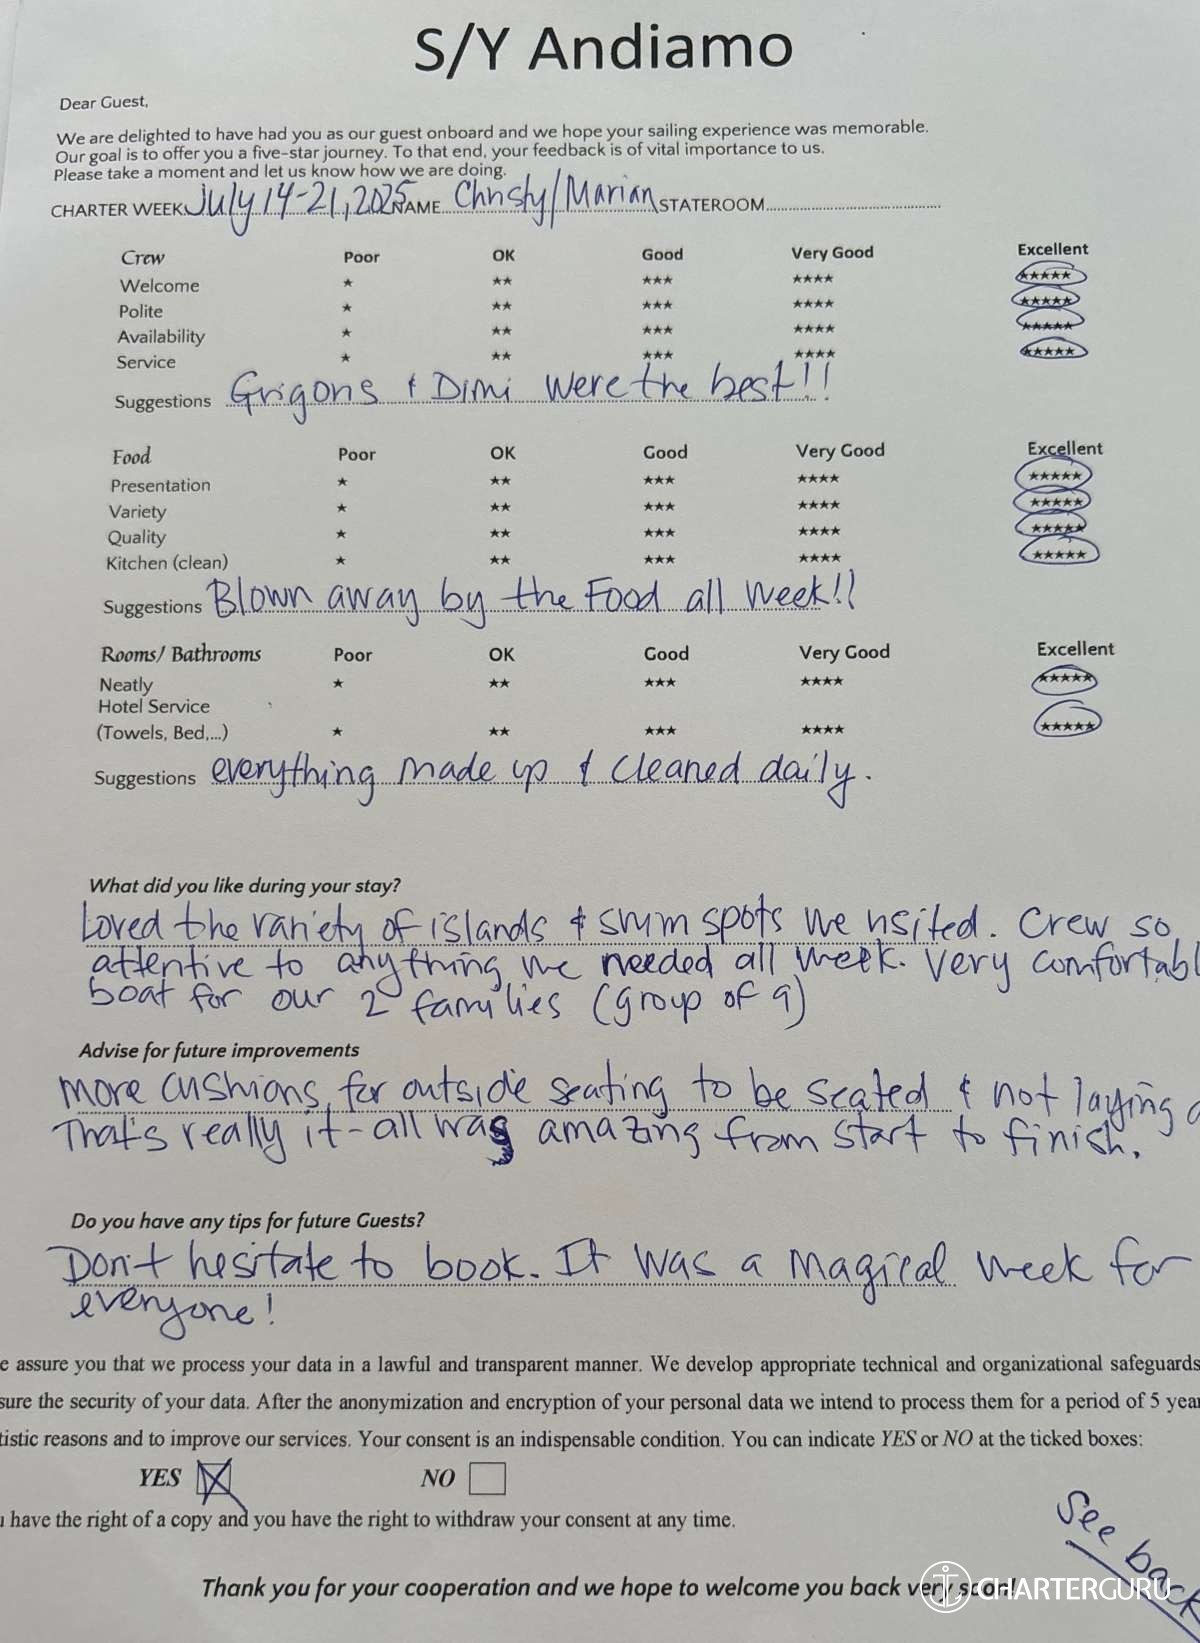 S/Y Andiamo
Dear Guest,
We are delighted to have had you as our guest onboard and we hope your sailing experience was memorable.
Our goal is to offer you a five-star journey. To that end, your feedback is of vital importance to us.
Please take a moment and let us know how we are doing.
CHARTER WEEK July 14-21, 2025 NAME Christy/Marian STATEROOM
Crew Poor OK Good Very Good Excellent
Welcome ★ ★★ ★★★ ★★★★ ★★★★★
Polite ★ ★★ ★★★ ★★★★ ★★★★★
Availability ★ ★★ ★★★ ★★★★ ★★★★★
Service ★ ★★ ★★★ ★★★★ ★★★★★
Suggestions Grigoris & Dimi were the best!!
Food Poor OK Good Very Good Excellent
Presentation ★ ★★ ★★★ ★★★★ ★★★★★
Variety ★ ★★ ★★★ ★★★★ ★★★★★
Quality ★ ★★ ★★★ ★★★★ ★★★★★
Kitchen (clean) ★ ★★ ★★★ ★★★★ ★★★★★
Suggestions Blown away by the Food all week!!
Rooms/ Bathrooms Poor OK Good Very Good Excellent
Neatly ★ ★★ ★★★ ★★★★ ★★★★★
Hotel Service
(Towels, Bed,...) ★ ★★ ★★★ ★★★★ ★★★★★
Suggestions everything made up & cleaned daily.
What did you like during your stay?
Loved the variety of islands & swim spots we visited. Crew so
attentive to anything we needed all week. Very comfortabl
boat for our 2 families (group of 9)
Advise for future improvements
More cushions for outside seating to be seated & not laying
That's really it - all was amazing from start to finish.
Do you have any tips for future Guests?
Don't hesitate to book. It was a magical week for
everyone!
e assure you that we process your data in a lawful and transparent manner. We develop appropriate technical and organizational safeguards
sure the security of your data. After the anonymization and encryption of your personal data we intend to process them for a period of 5 year
tistic reasons and to improve our services. Your consent is an indispensable condition. You can indicate YES or NO at the ticked boxes:
YES NO
u have the right of a copy and you have the right to withdraw your consent at any time.
See back
Thank you for your cooperation and we hope to welcome you back very soon!
CHARTERGURU